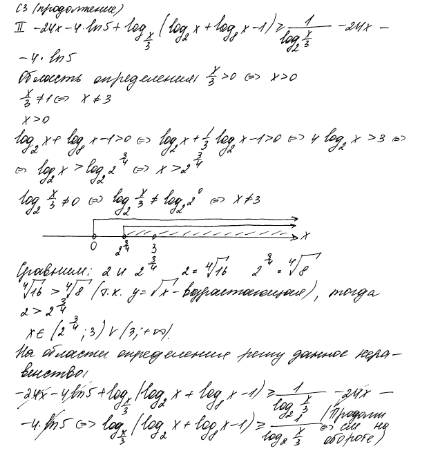 С3 (продолжение)
II -24x-4·ln5+log_{x/3}(log_2 x+log_8 x-1) ≥ 1/(log_2 x/3) -24x-
-4·ln5
Область определения: x/3>0 ⇔ x>0
x/3≠1 ⇔ x≠3
x>0
log_2 x+log_8 x-1>0 ⇔ log_2 x+1/3 log_2 x-1>0 ⇔ 4 log_2 x>3 ⇔
⇔ log_2 x>log_2 2^{3/4} ⇔ x>2^{3/4}
log_2 x/3≠0 ⇔ log_2 x/3≠log_2 2^0 ⇔ x≠3
0 2^{3/4} 3 x
Сравним: 2 и 2^{3/4} 2=∜16 2^{3/4}=∜8
∜16>∜8 (т.к. y=√x - возрастающая), тогда
2>2^{3/4}
x∈(2^{3/4};3)∨(3;+∞).
На области определения решу данное нера-
венство:
-24x-4·ln5+log_{x/3}(log_2 x+log_8 x-1) ≥ 1/(log_2 x/3) -24x-
-4·ln5 ⇔ log_{x/3}(log_2 x+log_8 x-1) ≥ 1/(log_2 x/3) ⇔ (Продолж
см на
обороте)